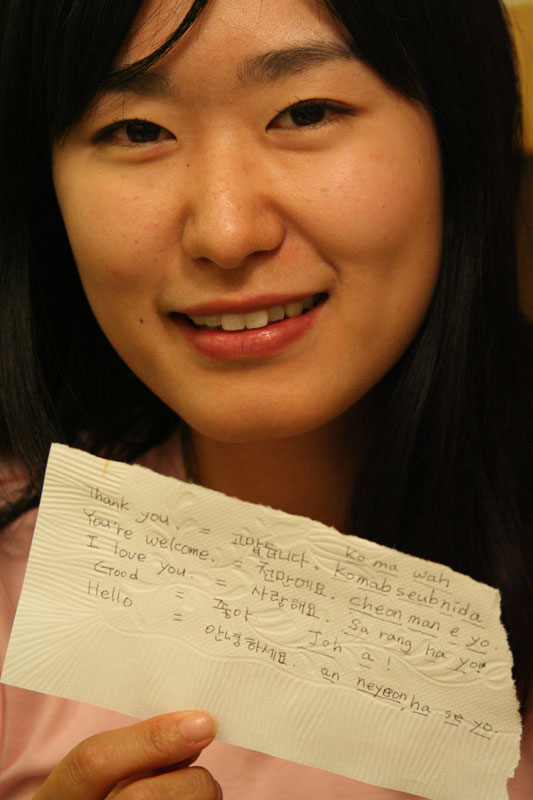 ko ma wah
Thank you. = 고맙습니다. komabseubnida
You're welcome. = 천만에요. cheon man e yo.
I love you. = 사랑해요. Sa rang ha yo!
Good = 좋아 Joh a!
Hello = 안녕하세요. an nyeon ha se yo.